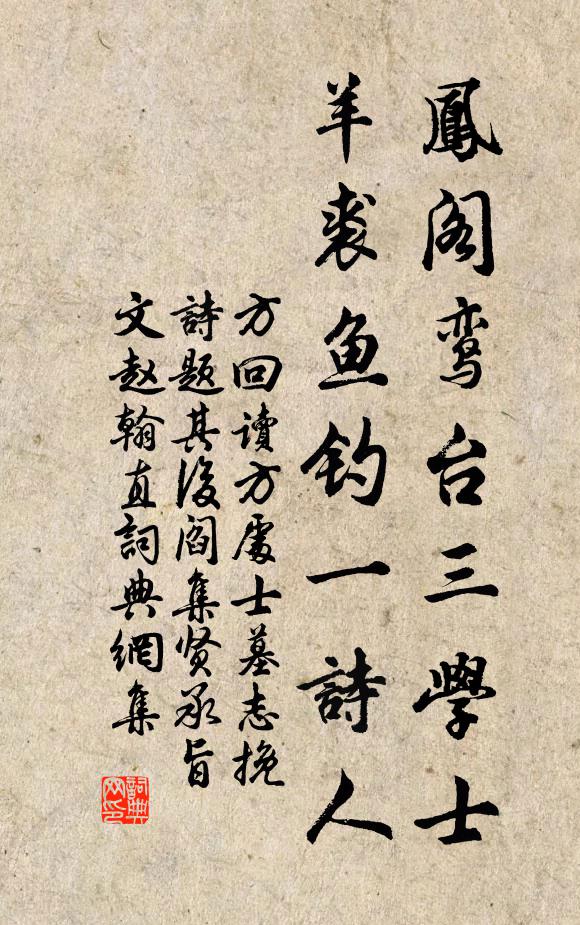 鳳阁鸾台三學士
羊裘鱼钓一詩人
方回讀方處士墓志挽
詩题其後阎集贤承旨
文赵翰直詞典網集
詞典
网印